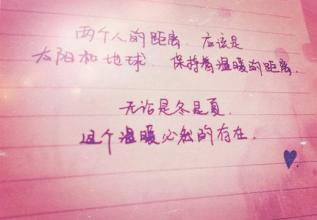 两个人的距离 应该是
太阳和地球 保持着温暖的距离.
无论是冬是夏
这个温暖必然的存在.